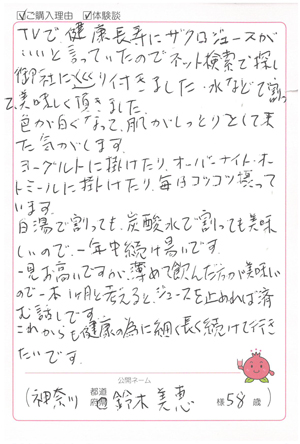 ☑ご購入理由 ☑体験談
TVで健康長寿にザクロジュースが
いいと言っていたのでネット検索で探し
御社に辿り付きました。水などで割っ
て美味しく頂きました。
色が白くなって、肌がしっとりとして来
た気がします。
ヨーグルトに掛けたり、オーバーナイト・オ
トミールに掛けたり、毎日コツコツ摂って
います。
白湯で割っても、炭酸水で割っても美味
しいので、一年中続け易いです。
一見お高いですが、薄めて飲んだ方が美味しい
ので一本1ヶ月と考えると、ジュースを止めれば済
む話しです。
これからも健康の為に細く長く続けて行き
たいです。
公開ネーム
(神奈川 都道府県 鈴木美恵 様 58 歳)